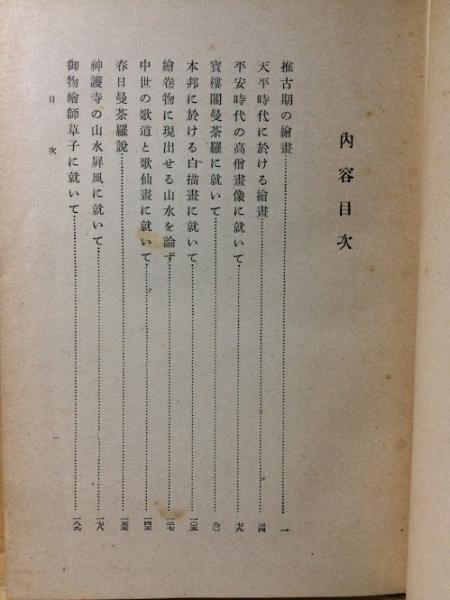 內容目次
推古期の繪畫……一
天平時代に於ける繪畫……三四
平安時代の高僧畫像に就いて……七九
寳樓閣曼荼羅に就いて……九〇
本邦に於ける白描畫に就いて……一〇五
繪卷物に現出せる山水を論ず……一二七
中世の歌道と歌仙畫に就いて……一四五
春日曼荼羅說……一五五
神護寺の山水屏風に就いて……一七八
御物繪師草子に就いて……一八九
目次
一